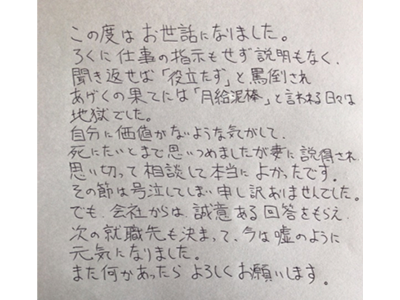 この度はお世話になりました。
ろくに仕事の指示もせず説明もなく、
聞き返せば「役立たず」と罵倒され
あげくの果てには「月給泥棒」と言われる日々は
地獄でした。
自分に価値がないような気がして、
死にたいとまで思いつめましたが妻に説得され
思い切って相談して本当によかったです。
その節は号泣してしまい申し訳ありませんでした。
でも、会社からは、誠意ある回答をもらえ、
次の就職先も決まって、今は嘘のように
元気になりました。
また何かあったらよろしくお願いします。